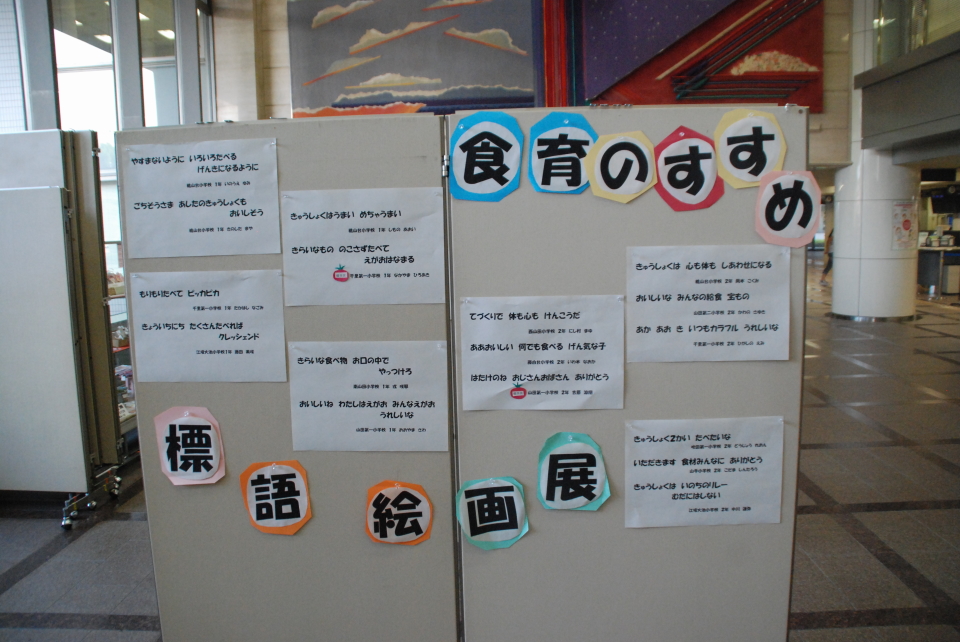 食育のすすめ
標語絵画展
やすまないように いろいろたべる
げんきになるように
ごちそうさま あしたのきゅうしょくも
おいしそう
きゅうしょくはうまい めちゃうまい
きらいなもの のこさずたべて
えがおはなまる
千里第一小学校 1年 なかやま ひろあき
もりもりたべて ピッカピカ
きょういちにち たくさんたべれば
クレッシェンド
きらいな食べ物 お口の中で
やっつけろ
おいしいね わたしはえがお みんなえがお
うれしいな
てづくりで 体も心も けんこうだ
ああおいしい 何でも食べる げん気な子
はたけのね おじさんおばさん ありがとう
きゅうしょくは 心も体も しあわせになる
おいしいな みんなの給食 宝もの
あか あお き いつもカラフル うれしいな
きゅうしょく2かい たべたいな
いただきます 食材みんなに ありがとう
きゅうしょくは いのちのリレー
むだにはしない